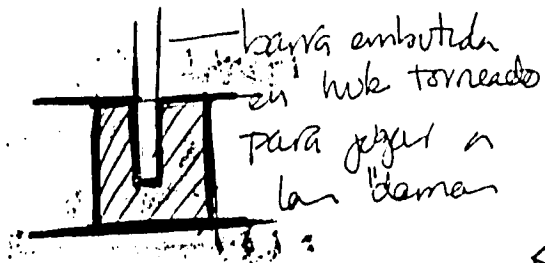 barra embutida
en hub torneado
para pegar a
las "damas